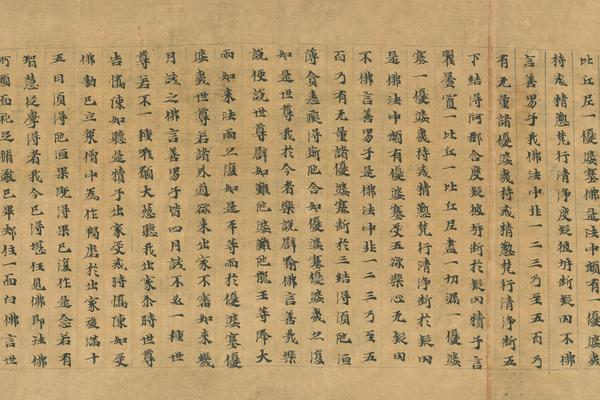 是佛法中頗有優婆夷
持戒精懃梵行清淨度疑彼岸斷疑网不佛
言善男子我佛法中非一二三乃至五百乃
有无量諸優婆夷持戒精懃梵行清淨斷五
下結得阿那含度疑彼岸斷於疑网犢子言
瞿曇置一比丘一比丘尼盡一切漏一優婆
塞一優婆夷持戒精懃梵行清淨斷於疑网
是佛法中頗有優婆塞受五欲樂心无疑网
不佛言善男子是佛法中非一二三乃至五
百乃有无量諸優婆塞斷於三結得須陁洹
薄貪恚癡得斯陁含如優婆塞優婆夷亦復
如是世尊我於今者樂說譬喻佛言善哉樂
說便說世尊譬如難陁婆難陁龍王等降大
雨如來法雨亦復如是平等雨於優婆塞優
婆夷世尊若諸外道欲來出家不審如來幾
月試之佛言善男子皆四月試不必一種世
尊若不一種唯願大慈聽我出家尒時世尊
告憍陳如聽是犢子出家受戒時憍陳如受
佛勑已立衆僧中為作羯磨於出家後滿十
五日須得陁洹果既得果已復作是念若有
智慧從學得者我今已得堪任見佛即往佛
所頭面礼足脩敬已畢却住一面白佛言世